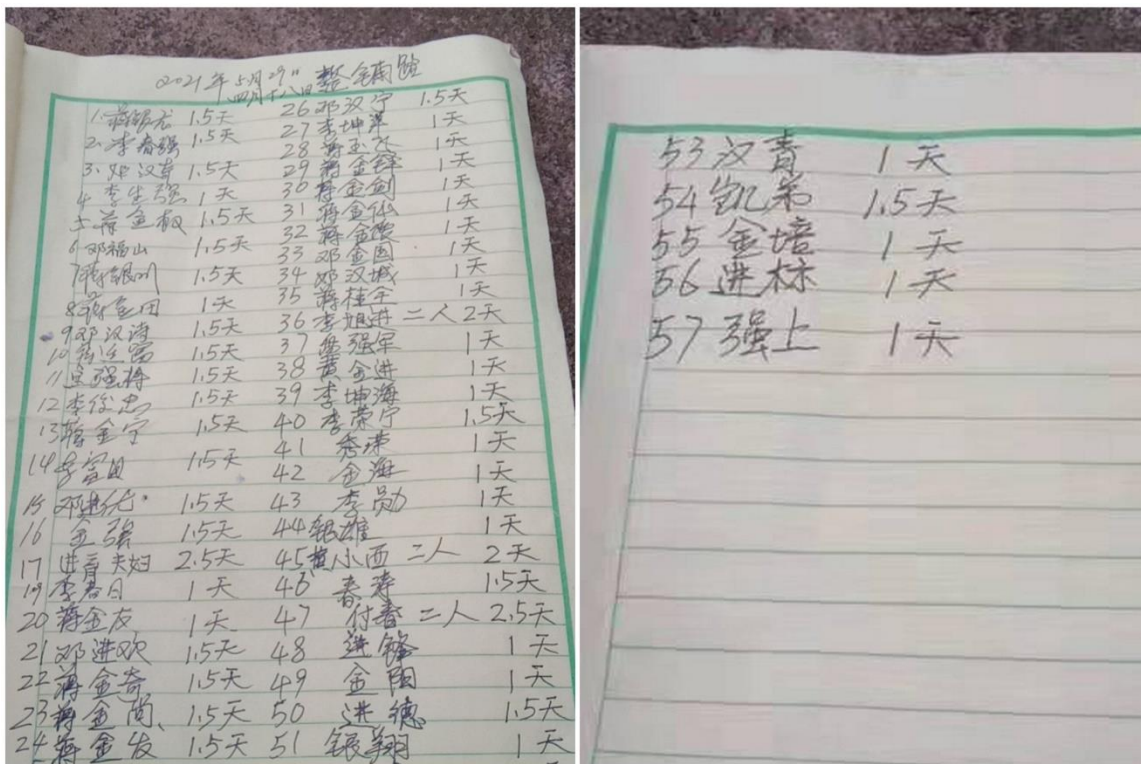 2021年5月29日 整铺南路
四月十八日
1. 1.5天
2. 李春强 1.5天
3. 邓汉青 1.5天
4 李生强 1天
5 蒋金敏 1.5天
6 邓福山 1.5天
7 蒋银川 1.5天
8 蒋金田 1天
9 邓汉涛 1.5天
10 1.5天
11 1.5天
12 李俊忠 1.5天
13 蒋金宁 1.5天
14 李富国 1.5天
15 1.5天
16 金强 1.5天
17 进育夫妇 2.5天
19 李春日 1天
20 蒋金友 1天
21 邓进欢 1.5天
22 蒋金奇 1.5天
23 蒋金尚 1.5天
24 蒋金发 1.5天
26 邓汉宁 1.5天
27 李坤萍 1天
28 蒋玉飞 1天
29 蒋金锋 1天
30 蒋金剑 1天
31 蒋金仙 1天
32 蒋金德 1天
33 邓金国 1天
34 邓汉城 1天
35 蒋桂全 1天
36 李旭进 二人 2天
37 强军 1天
38 黄金进 1天
39 李坤海 1天
40 李荣宁 1.5天
41 秀荣 1天
42 金海 1天
43 李勋 1天
44 银雄 1天
45 黄小西 二人 2天
46 春涛 1.5天
47 付春 二人 2.5天
48 进锋 1天
49 金阳 1天
50 进德 1.5天
51 银翔 1天
53 汉青 1天
54 凯弟 1.5天
55 金培 1天
56 进标 1天
57 强上 1天